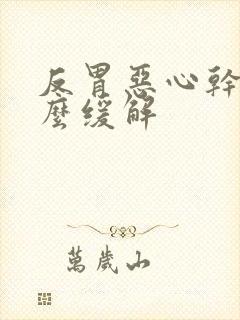 反胃惡心幹
麼緩解
萬歲山